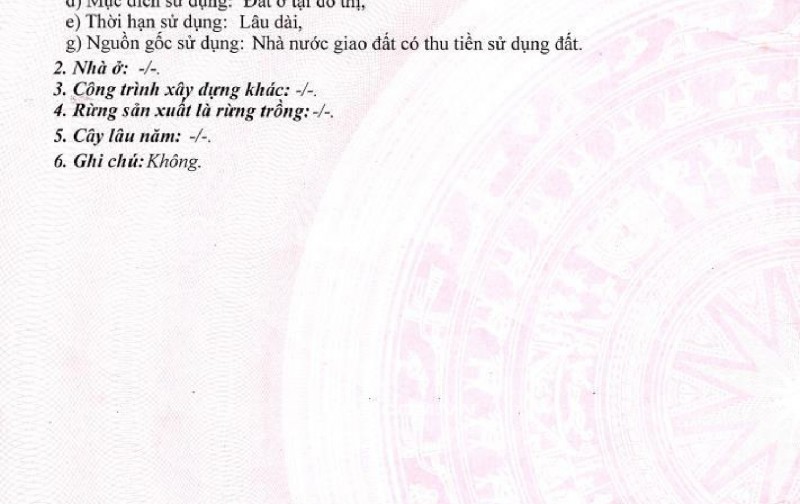 d) Mục đích sử dụng: Đất ở tại đô thị,
e) Thời hạn sử dụng: Lâu dài,
g) Nguồn gốc sử dụng: Nhà nước giao đất có thu tiền sử dụng đất.
2. Nhà ở: -/-.
3. Công trình xây dựng khác: -/-.
4. Rừng sản xuất là rừng trồng: -/-.
5. Cây lâu năm: -/-.
6. Ghi chú: Không.